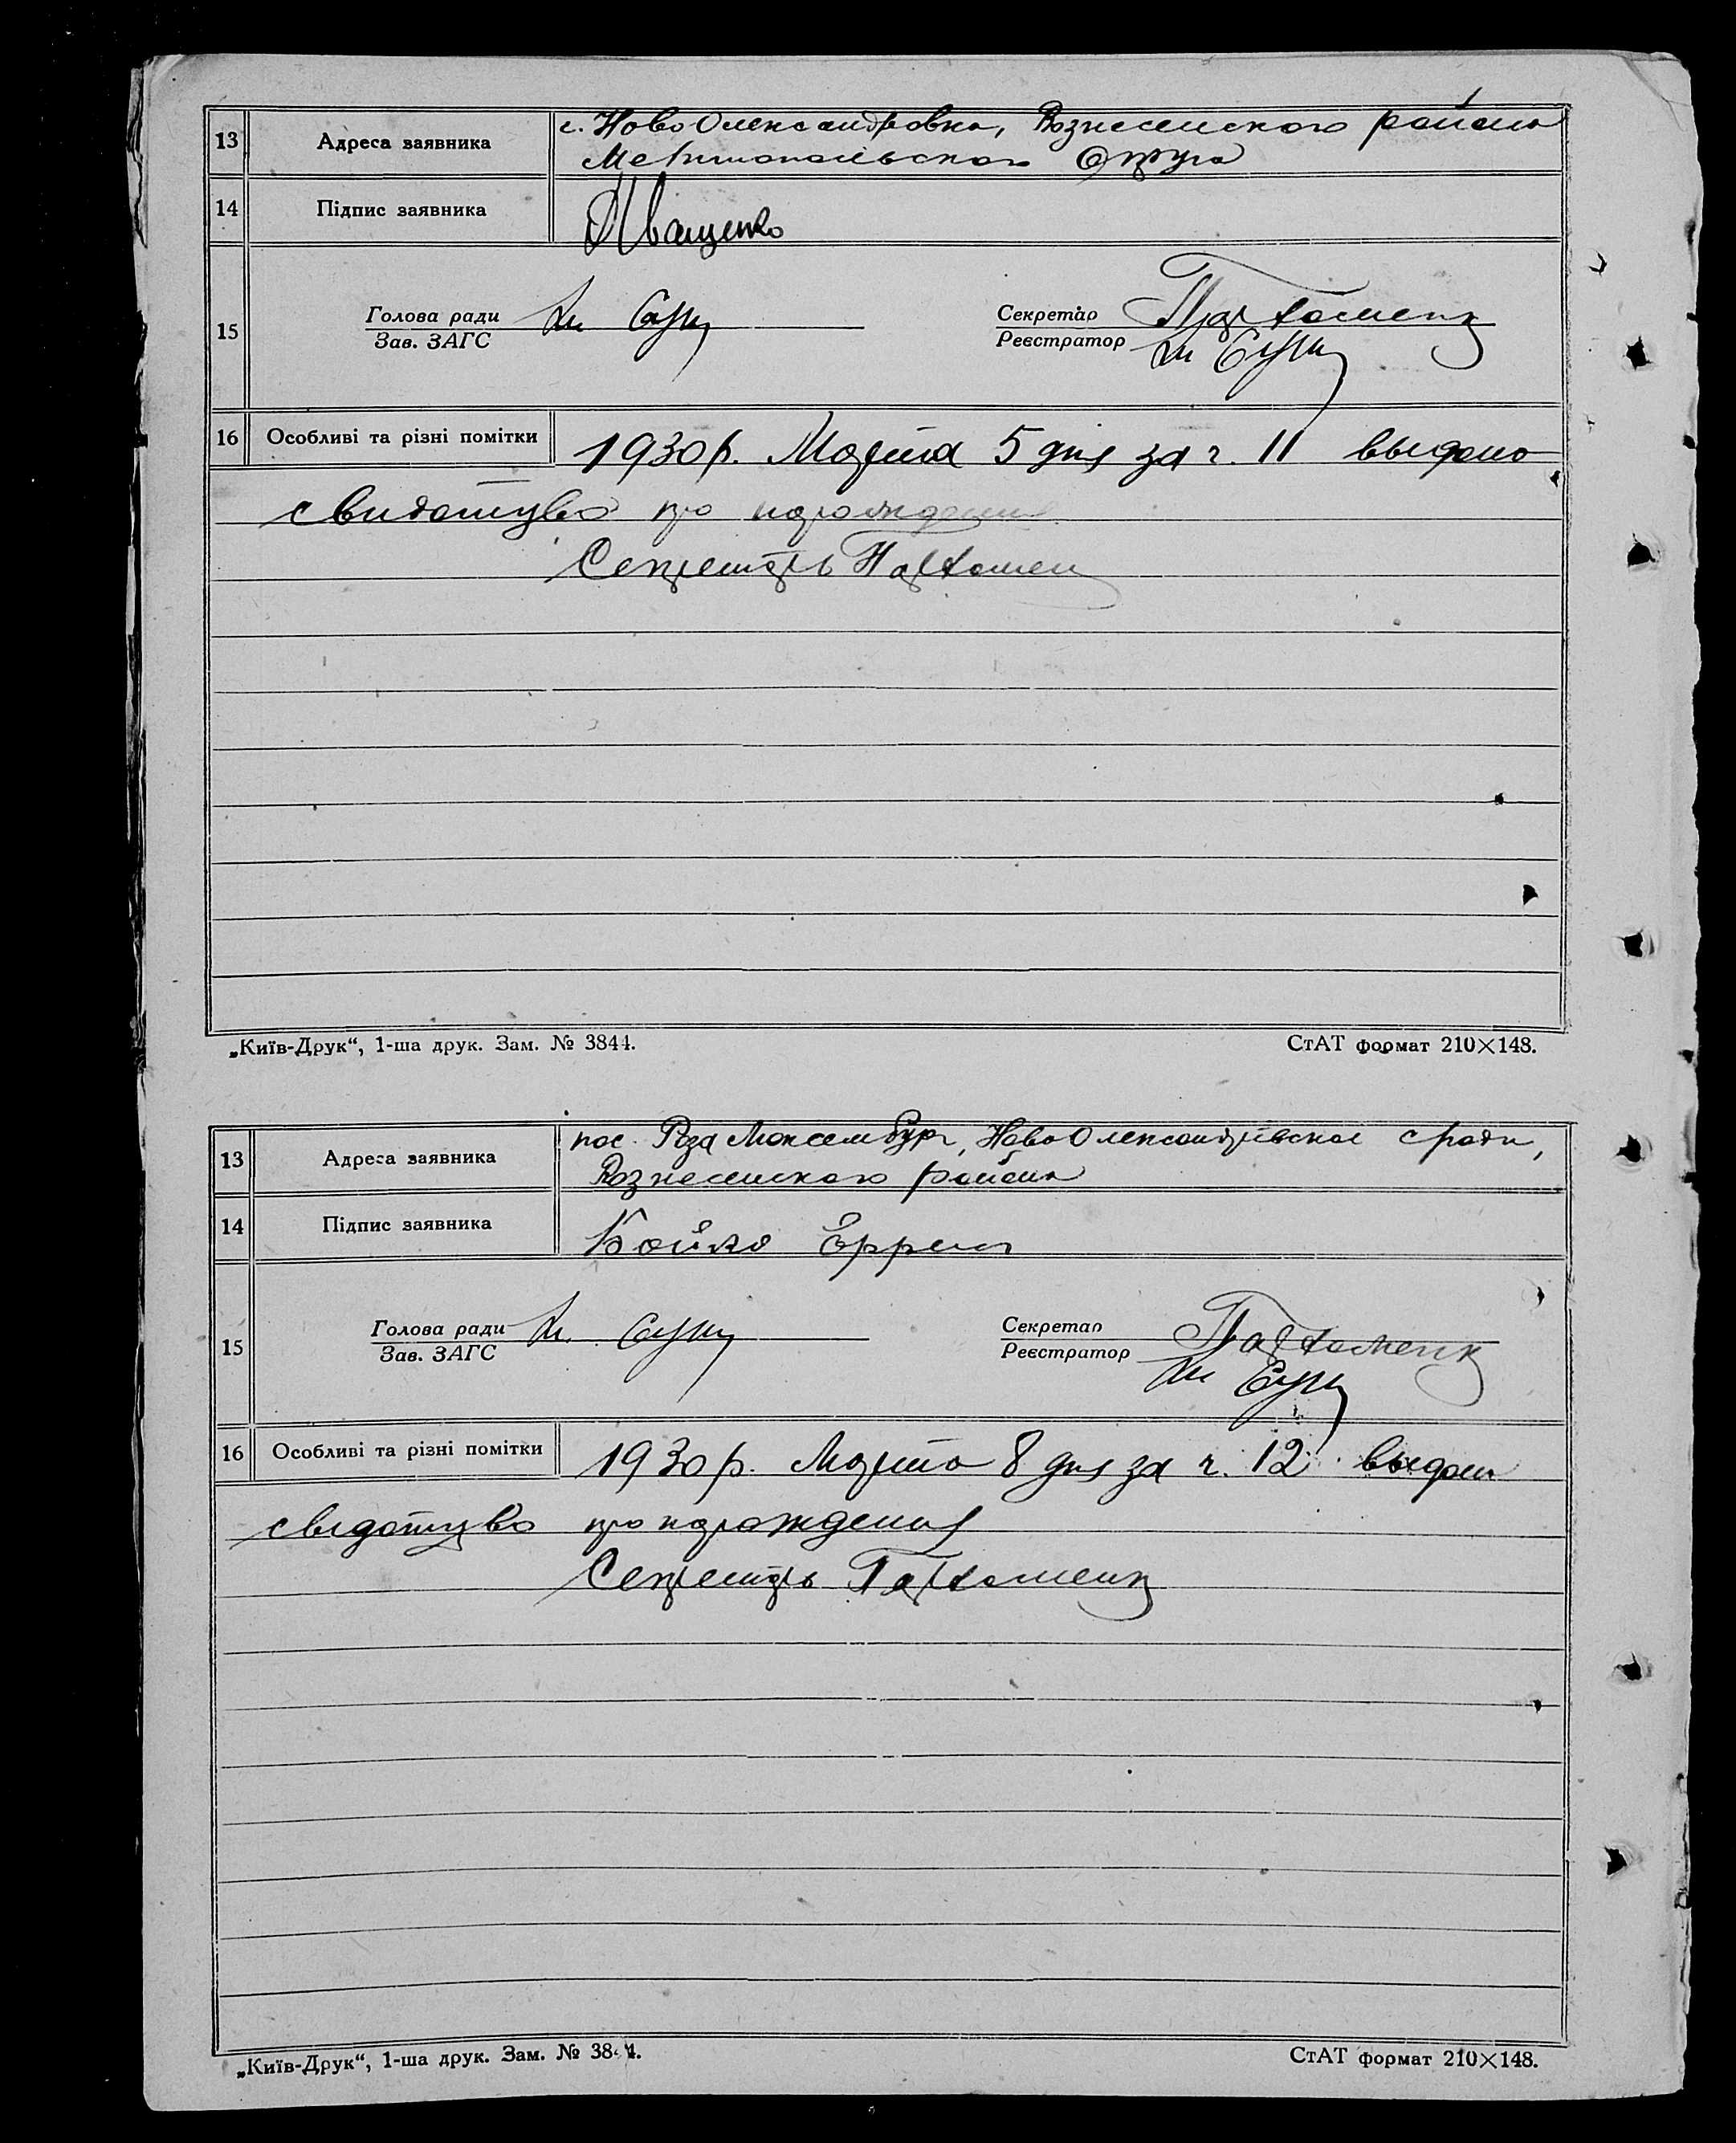 13 Адреса заявника с. Ново Олександровка, Вознесенского района
Мелитопольского Округа
14 Підпис заявника Иващенко
Голова ради Секретар Пархоменк
15
Зав. ЗАГС Реєстратор
16 Особливі та різні помітки 1930 р. Марта 5 дня за ч. 11 выдано
свидотцтво про нарождения
Секретарь Пархомен
„Київ-Друк“, 1-ша друк. Зам. № 3844. СтАТ формат 210×148.
13 Адреса заявника пос. Роза Люксембург, Ново Олександрівскоі с ради,
Вознесенского района
14 Підпис заявника Бойко
Голова ради Секретар Пархоменк
15
Зав. ЗАГС Реєстратор
16 Особливі та різні помітки 1930 р. Марта 8 дня за ч. 12 выдан
свидотцтво про нарождения
Секретарь Пархоменк
„Київ-Друк“, 1-ша друк. Зам. № 3844. СтАТ формат 210×148.